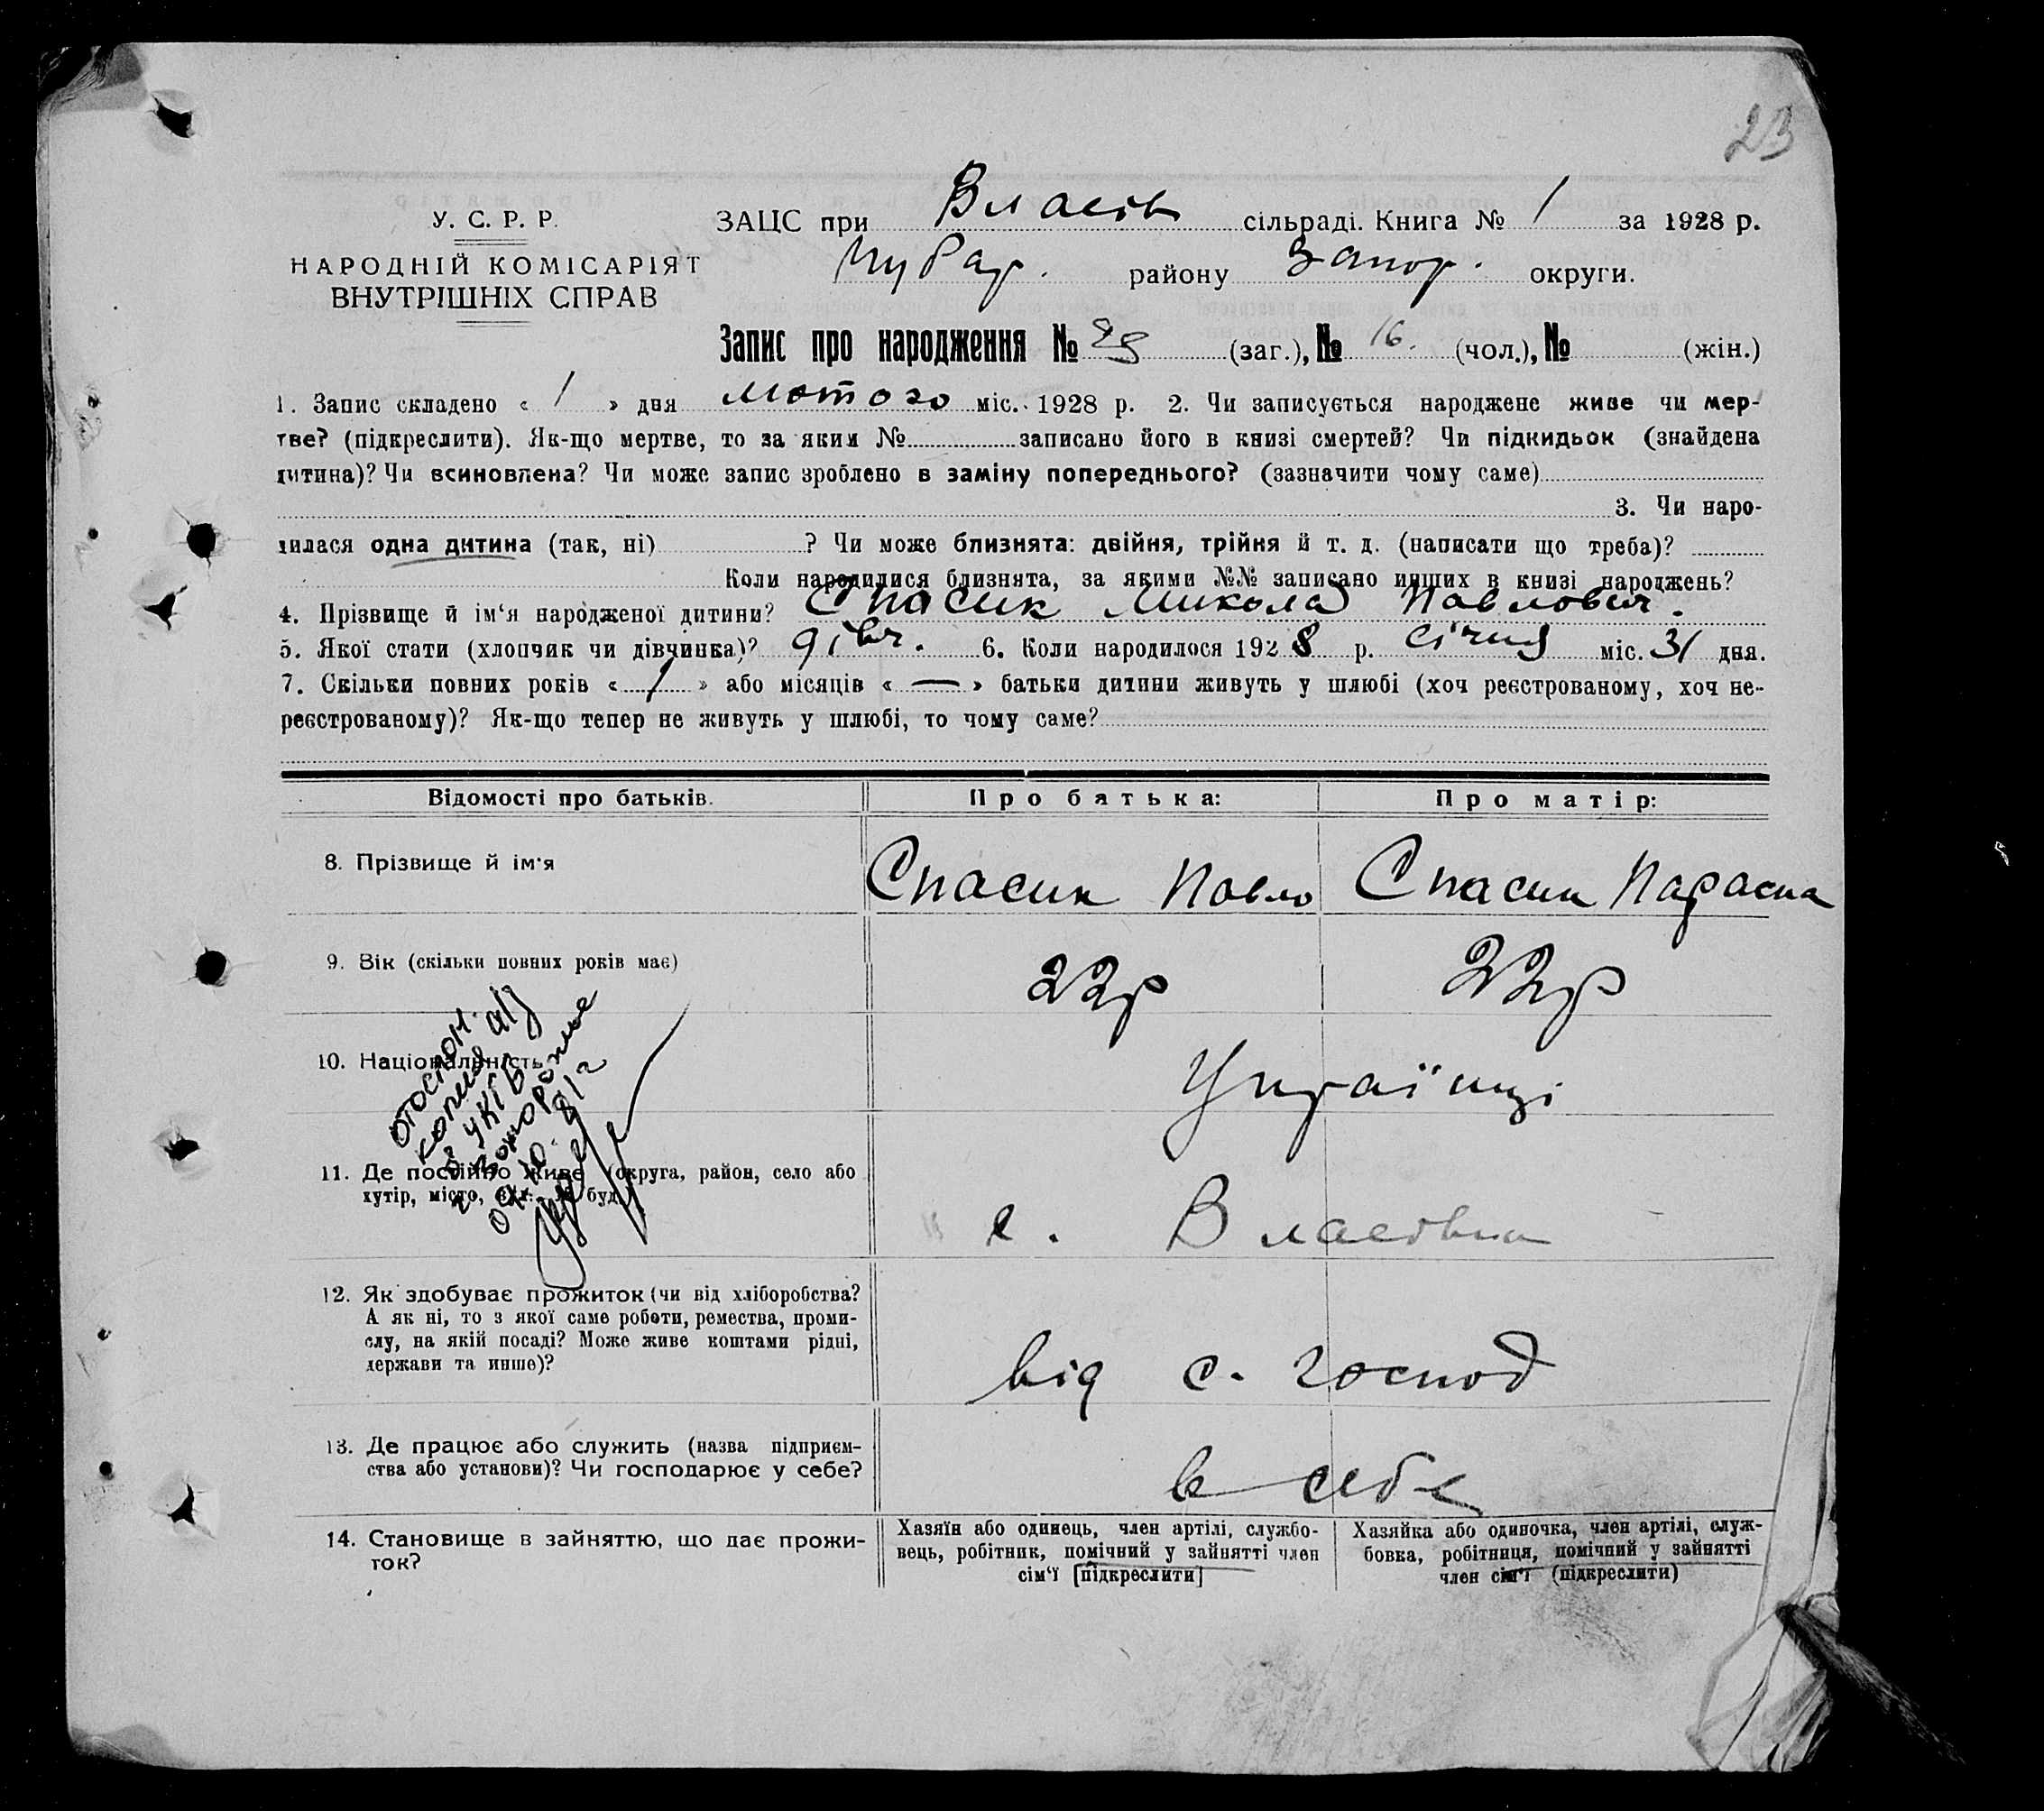 23
У. С. Р. Р.
НАРОДНІЙ КОМІСАРІЯТ
ВНУТРІШНІХ СПРАВ
ЗАЦС при Власів сільраді. Книга № 1 за 1928 р.
Чубар. району Запор. округи.
Запис про народження № (заг.), № 16. (чол.), № (жін.)
1. Запис складено « 1 » дня лютого міс. 1928 р. 2. Чи записується народжене живе чи мер-
тве? (підкреслити). Як-що мертве, то за яким № записано його в книзі смертей? Чи підкидьок (знайдена
дитина)? Чи всиновлена? Чи може запис зроблено в заміну попереднього? (зазначити чому саме)
3. Чи наро-
дилася одна дитина (так, ні) ? Чи може близнята: двійня, трійня й т. д. (написати що треба)?
Коли народилися близнята, за якими №№ записано инших в книзі народжень?
4. Прізвище й ім‘я народженої дитини? Спасик Микола Павлович.
5. Якої стати (хлопчик чи дівчинка)? дівч. 6. Коли народилося 1928 р. січня міс. 31 дня.
7. Скільки повних років « 1 » або місяців « — » батьки дитини живуть у шлюбі (хоч реєстрованому, хоч не-
реєстрованому)? Як-що тепер не живуть у шлюбі, то чому саме?
Відомості про батьків. Про батька: Про матір:
8. Прізвище й ім‘я Спасик Павло Спасик Параска
9. Вік (скільки повних років має) 22р 22р
10. Національність Українці
11. Де постійно живе (округа, район, село або
хутір, місто, вул. № буд.)
с. Власівка
12. Як здобуває прожиток (чи від хліборобства?
А як ні, то з якої саме роботи, ремества, проми-
слу, на якій посаді? Може живе коштами рідні,
держави та инше)?
від с. господ
13. Де працює або служить (назва підприєм-
ства або установи)? Чи господарює у себе?
в себе
14. Становище в зайняттю, що дає прожи-
ток?
Хазяїн або одинець, член артілі, службо-
вець, робітник, помічний у зайнятті член
сім‘ї [підкреслити]
Хазяйка або одиночка, член артілі, служ-
бовка, робітниця, помічний у зайнятті
член сім‘ї (підкреслити)
копия
в УКГБ